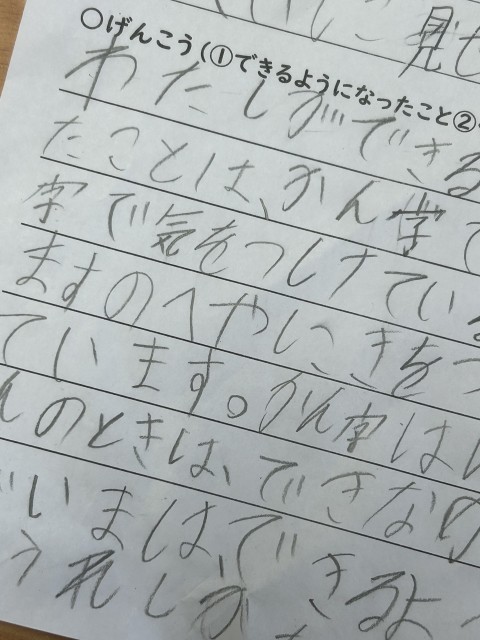 見せ
○げんこう(①できるようになったこと②
わたしができる
たことは、かん学
字で気をつけている
ますのへやにきをつ
ています。かん字は
んのときは、できなの
いまは、できるよ
うれしか